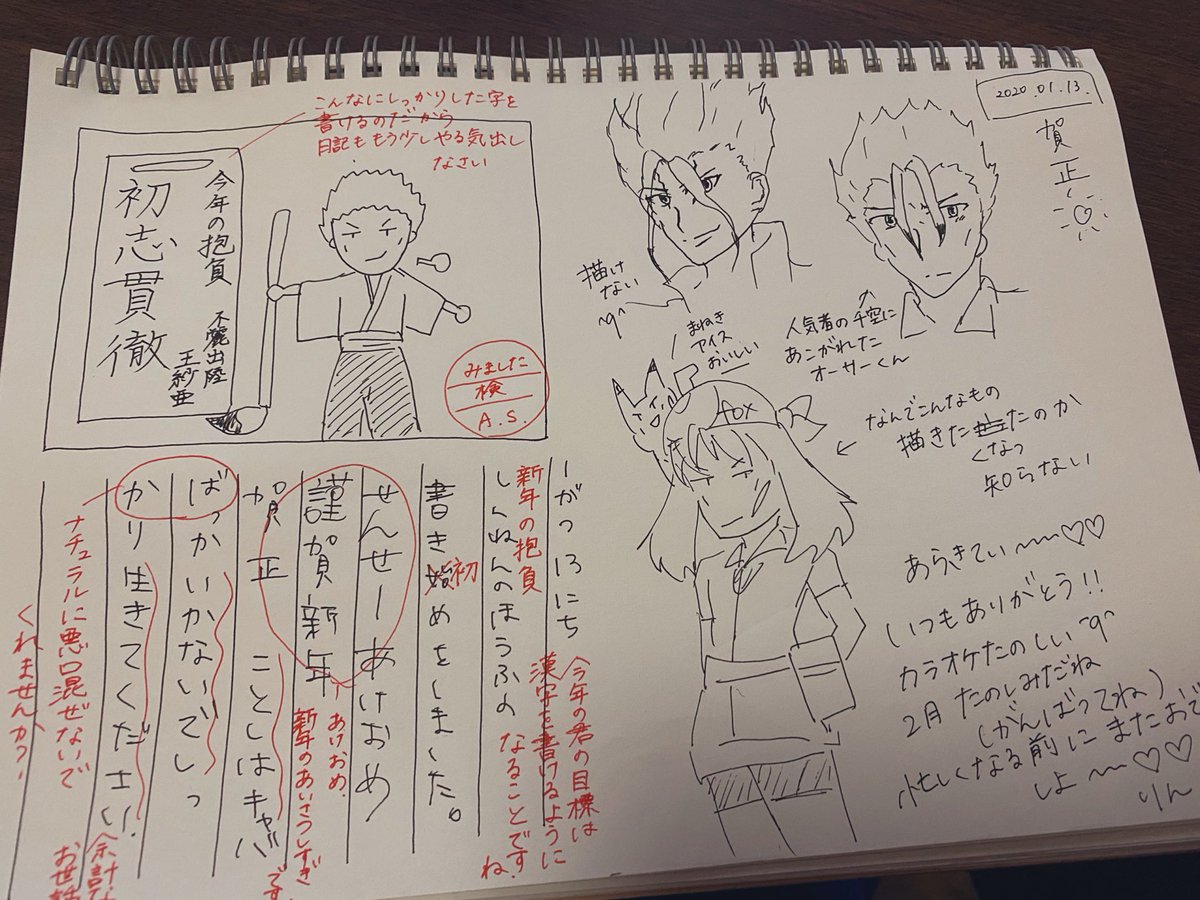 2020.01.13.
賀正
こんなにしっかりした字を
書けるのだから
日記ももう少しやる気出し
なさい
今年の抱負
不麗出陸
王紗亜
初志貫徹
みました
検
A.S.
一がつ13にち
しんねんのほうふの
書き始めをしました。
せんせーあけおめ
謹賀新年
賀正 ことしはキャバ
ばっかいかないでしっ
かり生きてください!
新年の抱負
初
今年の君の目標は
漢字を書けるように
なることです
ね。
あけおめ、
新年のあいさつしすぎ
です
ナチュラルに悪口混ぜないで
くれませんか?
余計な
お世話
描け
ない
^q^
人気者の千空に
あこがれた
オーサーくん
まねき
アイス
おいしい
fox
なんでこんなもの
描きたくなったのか
知らない
あらきてぃ〜〜♡♡
いつもありがとう!!
カラオケたのしい^q^
2月たのしみだね
(がんばってね)
忙しくなる前にまたおで
しよ〜〜♡♡
りん